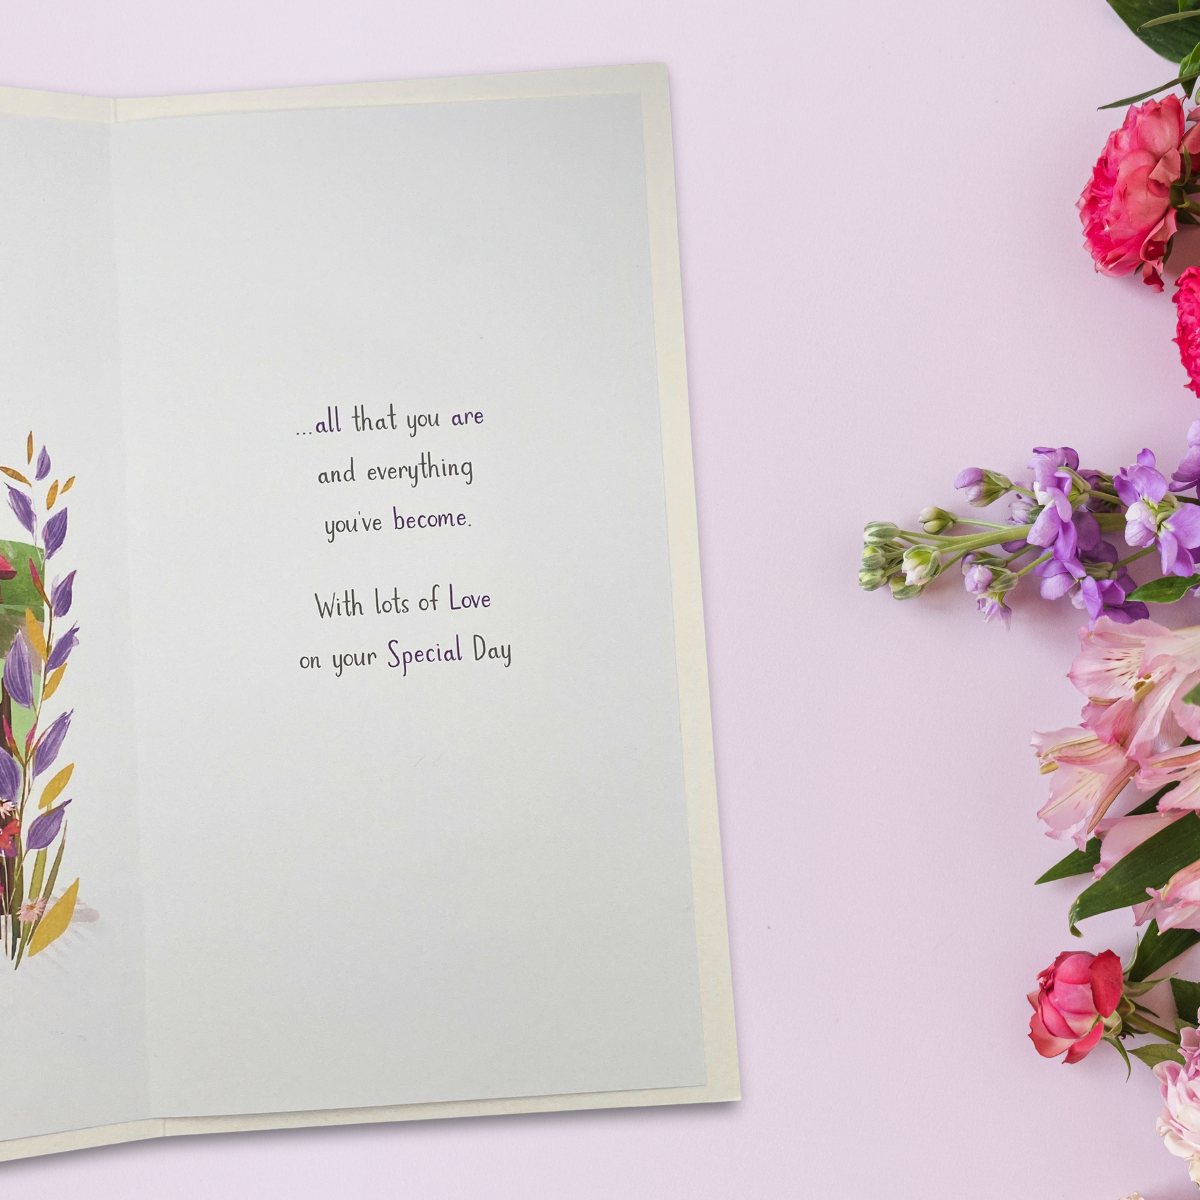 ...all that you are
and everything
you've become.
With lots of Love
on your Special Day